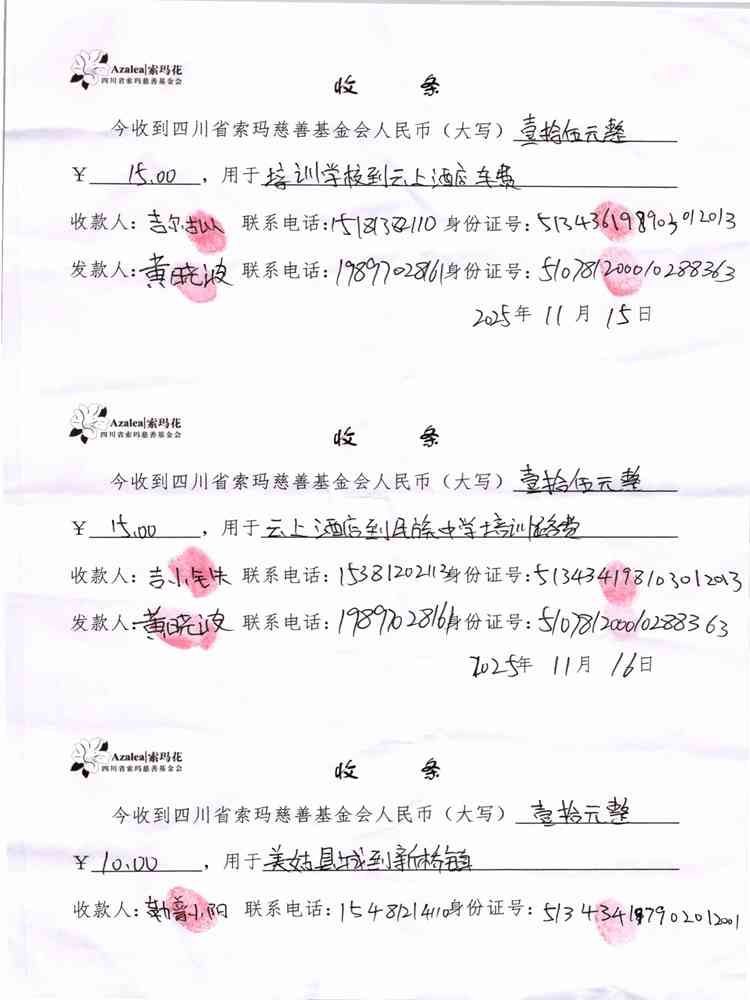 Azalea|索玛花
四川省索玛慈善基金会
收 条
今收到四川省索玛慈善基金会人民币（大写）壹拾伍元整
￥15.00，用于培训学校到云上酒店车费
收款人：吉尔 联系电话： 身份证号：513436198903012013
发款人：黄晓波 联系电话：19897028161 身份证号：510781200010288363
2025年 11 月 15日
Azalea|索玛花
四川省索玛慈善基金会
收 条
今收到四川省索玛慈善基金会人民币（大写）壹拾伍元整
￥15.00，用于云上酒店到民族中学培训路费
收款人：吉小 联系电话：15381202113 身份证号：513434198103012013
发款人：黄晓波 联系电话：19897028161 身份证号：510781200010288363
2025年 11 月 16日
Azalea|索玛花
四川省索玛慈善基金会
收 条
今收到四川省索玛慈善基金会人民币（大写）壹拾元整
￥10.00，用于美姑县城到新桥镇
收款人：勒普小阳 联系电话：15481214110 身份证号：513434197902012001